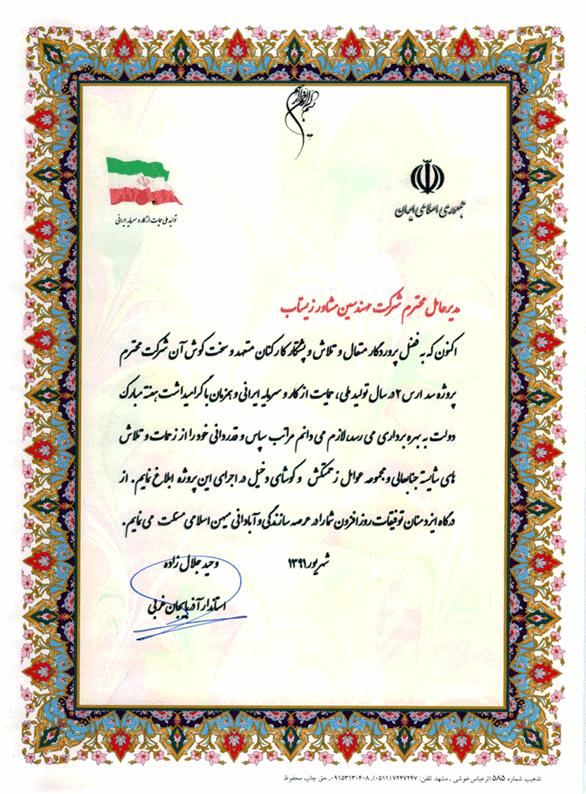 بسم الله الرحمن الرحیم
جمهوری اسلامی ایران
تولید ملی حمایت از کار و سرمایه ایرانی
مدیرعامل محترم شرکت مهندسین مشاور زیستاب
اکنون که به فضل پروردگار متعال و تلاش و پشتکار کارکنان متعهد و سخت کوش آن شرکت محترم
پروژه سد ارس ۲ در سال تولید ملی، حمایت از کار و سرمایه ایرانی و همزمان با گرامیداشت هفته مبارک
دولت به بهره برداری می رسد، لازم می دانم مراتب سپاس و قدردانی خود را از زحمات و تلاش
های شایسته جنابعالی و مجموعه عوامل زحمتکش و کوشای دخیل در اجرای این پروژه ابلاغ نمایم. از
درگاه ایزد منان توفیقات روز افزون شما را در عرصه سازندگی و آبادانی میهن اسلامی مسئلت می نمایم.
شهریور ۱۳۹۱
وحید جلال زاده
استاندار آذربایجان غربی
تذهیب شماره ۵۸۵ اثر عباس خوشی . مشهد تلفن: ۷۲۴۷۲۴۷ (۰۵۱۱)ـ ۰۹۱۵۳۱۳۰۴۰۸ حق چاپ محفوظ